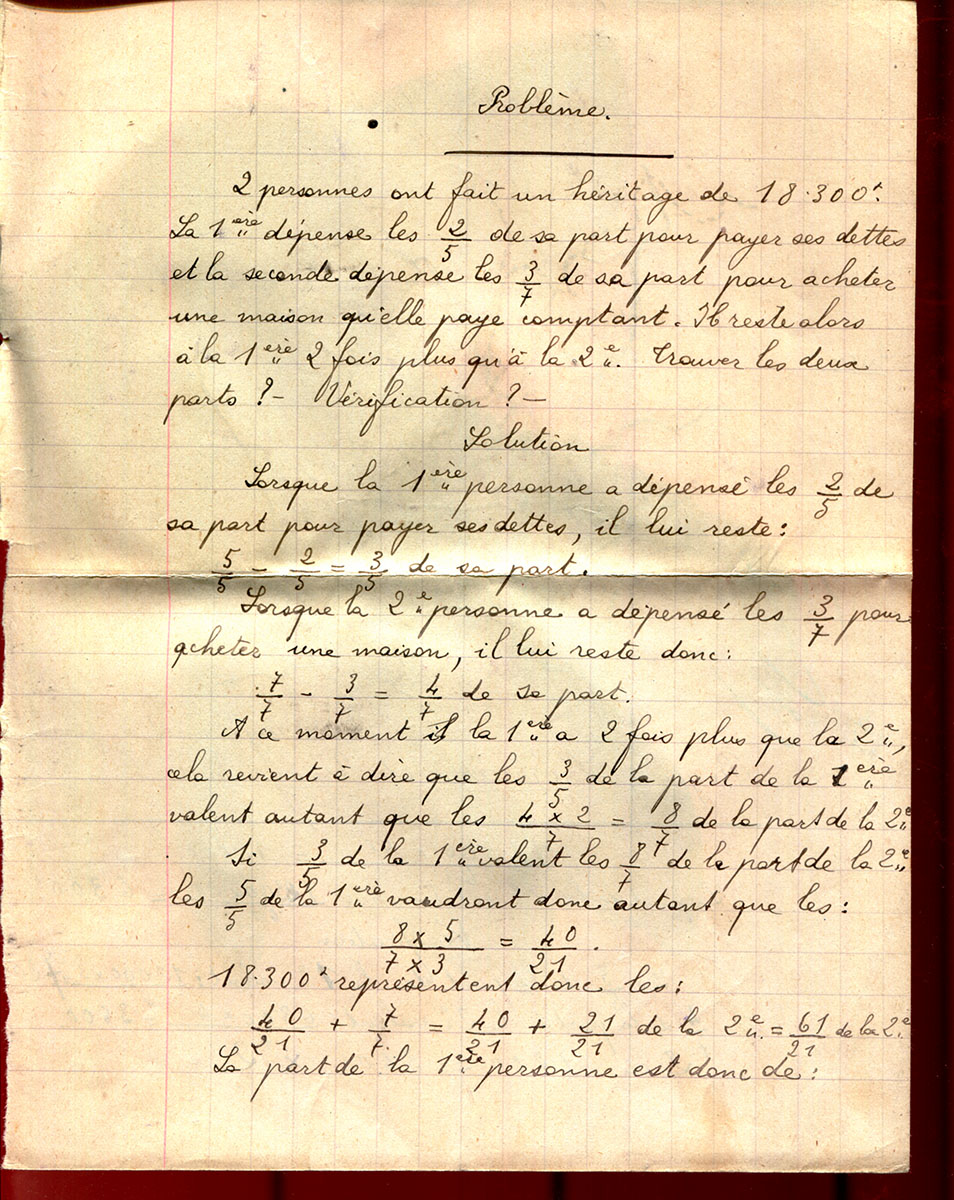 Problème.
2 personnes ont fait un héritage de 18.300ᶠ.
La 1ère dépense les 2/5 de sa part pour payer ses dettes
et la seconde dépense les 3/7 de sa part pour acheter
une maison qu'elle paye comptant. Il reste alors
à la 1ère 2 fois plus qu'à la 2e. Trouver les deux
parts ?— Vérification ?—
Solution
Lorsque la 1ère personne a dépensé les 2/5 de
sa part pour payer ses dettes, il lui reste :
5/5 - 2/5 = 3/5 de sa part.
Lorsque la 2e personne a dépensé les 3/7 pour
acheter une maison, il lui reste donc :
7/7 - 3/7 = 4/7 de sa part.
A ce moment la 1ère a 2 fois plus que la 2e,
cela revient à dire que les 3/5 de la part de la 1ère
valent autant que les 4 x 2/7 = 8/7 de la part de la 2e
Si 3/5 de la 1ère valent les 8/7 de la part de la 2e
les 5/5 de la 1ère vaudront donc autant que les :
8 x 5/7 x 3 = 40/21.
18.300ᶠ représentent donc les :
40/21 + 7/7 = 40/21 + 21/21 de la 2e = 61/21 de la 2e
La part de la 1ère personne est donc de :